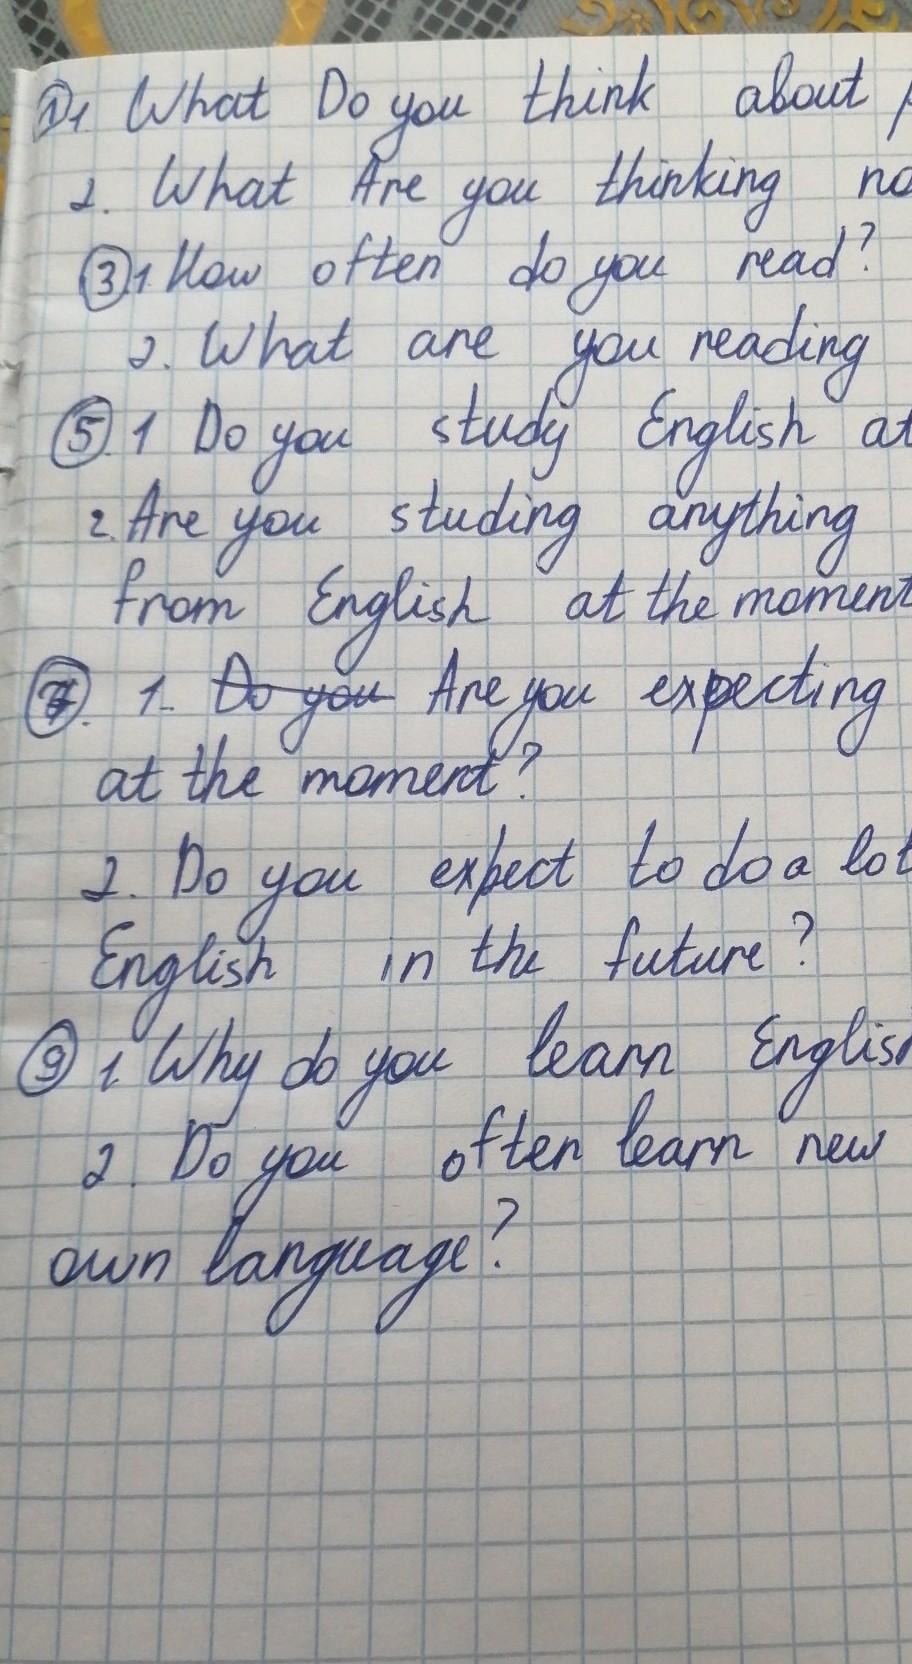 ① 1. What Do you think about
2. What Are you thinking
③ 1 How often do you read?
2. What are you reading
⑤. 1 Do you study English at
2. Are you studing anything
from English at the moment
⑦. 1. ~~Do you~~ Are you expecting
at the moment?
2. Do you expect to do a lot
English in the future?
⑨ 1 Why do you learn English
2. Do you often learn new
own language?